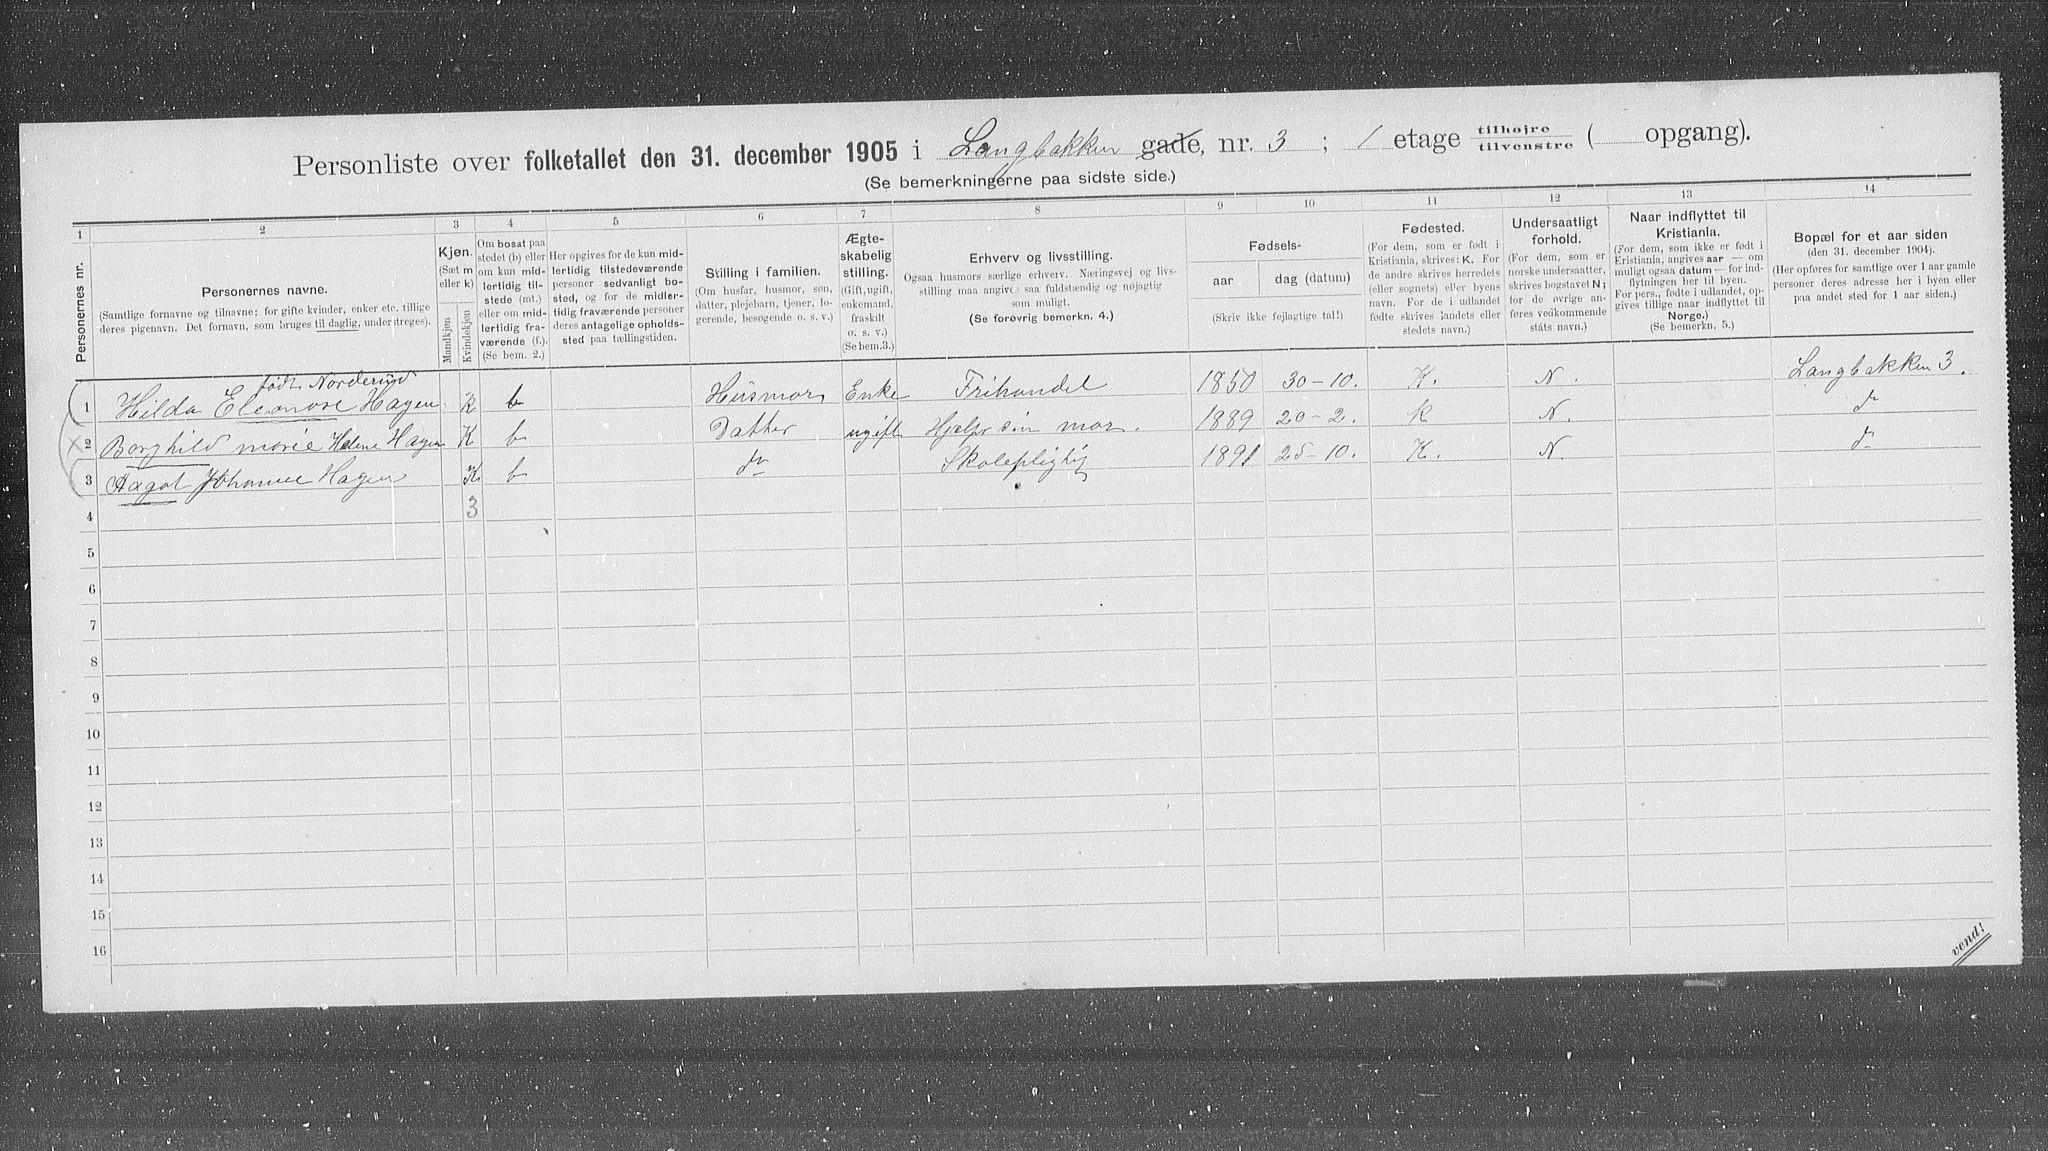 Personliste over folketallet den 31. december 1905 i Langbakken gade, nr. 3 ; 1 etage tilhøjre tilvenstre ( opgang).
(Se bemerkningerne paa sidste side.)
1 2 3 4 5 6 7 8 9 10 11 12 13 14
Personernes nr.
Personernes navne.
(Samtlige fornavne og tilnavne; for gifte kvinder, enker etc. tillige
deres pigenavn. Det fornavn, som bruges til daglig, understreges).
Kjøn.
(Sæt m
eller k)
Mandkjøn
Kvindekjøn
Om bosat paa
stedet (b) eller
om kun mid-
lertidig til-
stede (mt.)
eller om mid-
lertidig fra-
værende (f.).
(Se bem. 2.)
Her opgives for de kun mid-
lertidig tilstedeværende
personer sedvanligt bo-
sted, og for de midler-
tidig fraværende personer
deres antagelige opholds-
sted paa tællingstiden.
Stilling i familien.
(Om husfar, husmor, søn,
datter, plejebarn, tjener, lo-
gerende, besøgende o. s. v.)
Ægte-
skabelig
stilling.
(Gift, ugift,
enkemand,
fraskilt
o. s. v.)
(Se bem.3.)
Erhverv og livsstilling.
Ogsaa husmors særlige erhverv. Næringsvej og livs-
stilling maa angives saa fuldstændig og nøjagtig
som muligt.
(Se forøvrig bemerkn. 4.)
Fødsels-
aar dag (datum)
(Skriv ikke fejlagtige tal!)
Fødested.
(For dem, som er født i
Kristiania, skrives: K. For
de andre skrives herredets
(eller sognets) el'er byens
navn. For de i udlandet
fødte skrives landets eller
stedets navn.)
Undersaatligt
forhold.
(For dem, som er
norske undersaatter,
skrives bogstavet N;
for de øvrige an-
føres vedkommende
stats navn.)
Naar indflyttet til
Kristiania.
(For dem, som ikke er født i
Kristiania, angives aar — om
muligt ogsaa datum — for ind-
flytningen her til byen.
For pers., fødte i udlandet, op-
gives tillige naar indflyttet til
Norge.)
(Se bemerkn. 5.)
Bopæl for et aar siden
(den 31. december 1904).
(Her opføres for samtlige over 1 aar gamle
personer deres adresse her i byen eller
paa andet sted for 1 aar siden.)
født Norderud
1 Hilda Eleonore Hagen. K b Husmor Enke Frihandel 1850 30-10. K. N. Langbakken 3.
2 Borghild Marie Helene Hagen K b Datter ugift Hjelper sin mor. 1889 20-2. K N. do
3 Aagot Johanne Hagen K b do Skolepligtig 1891 25-10. K. N. do
4 3
5
6
7
8
9
10
11
12
13
14
15
16
vend!